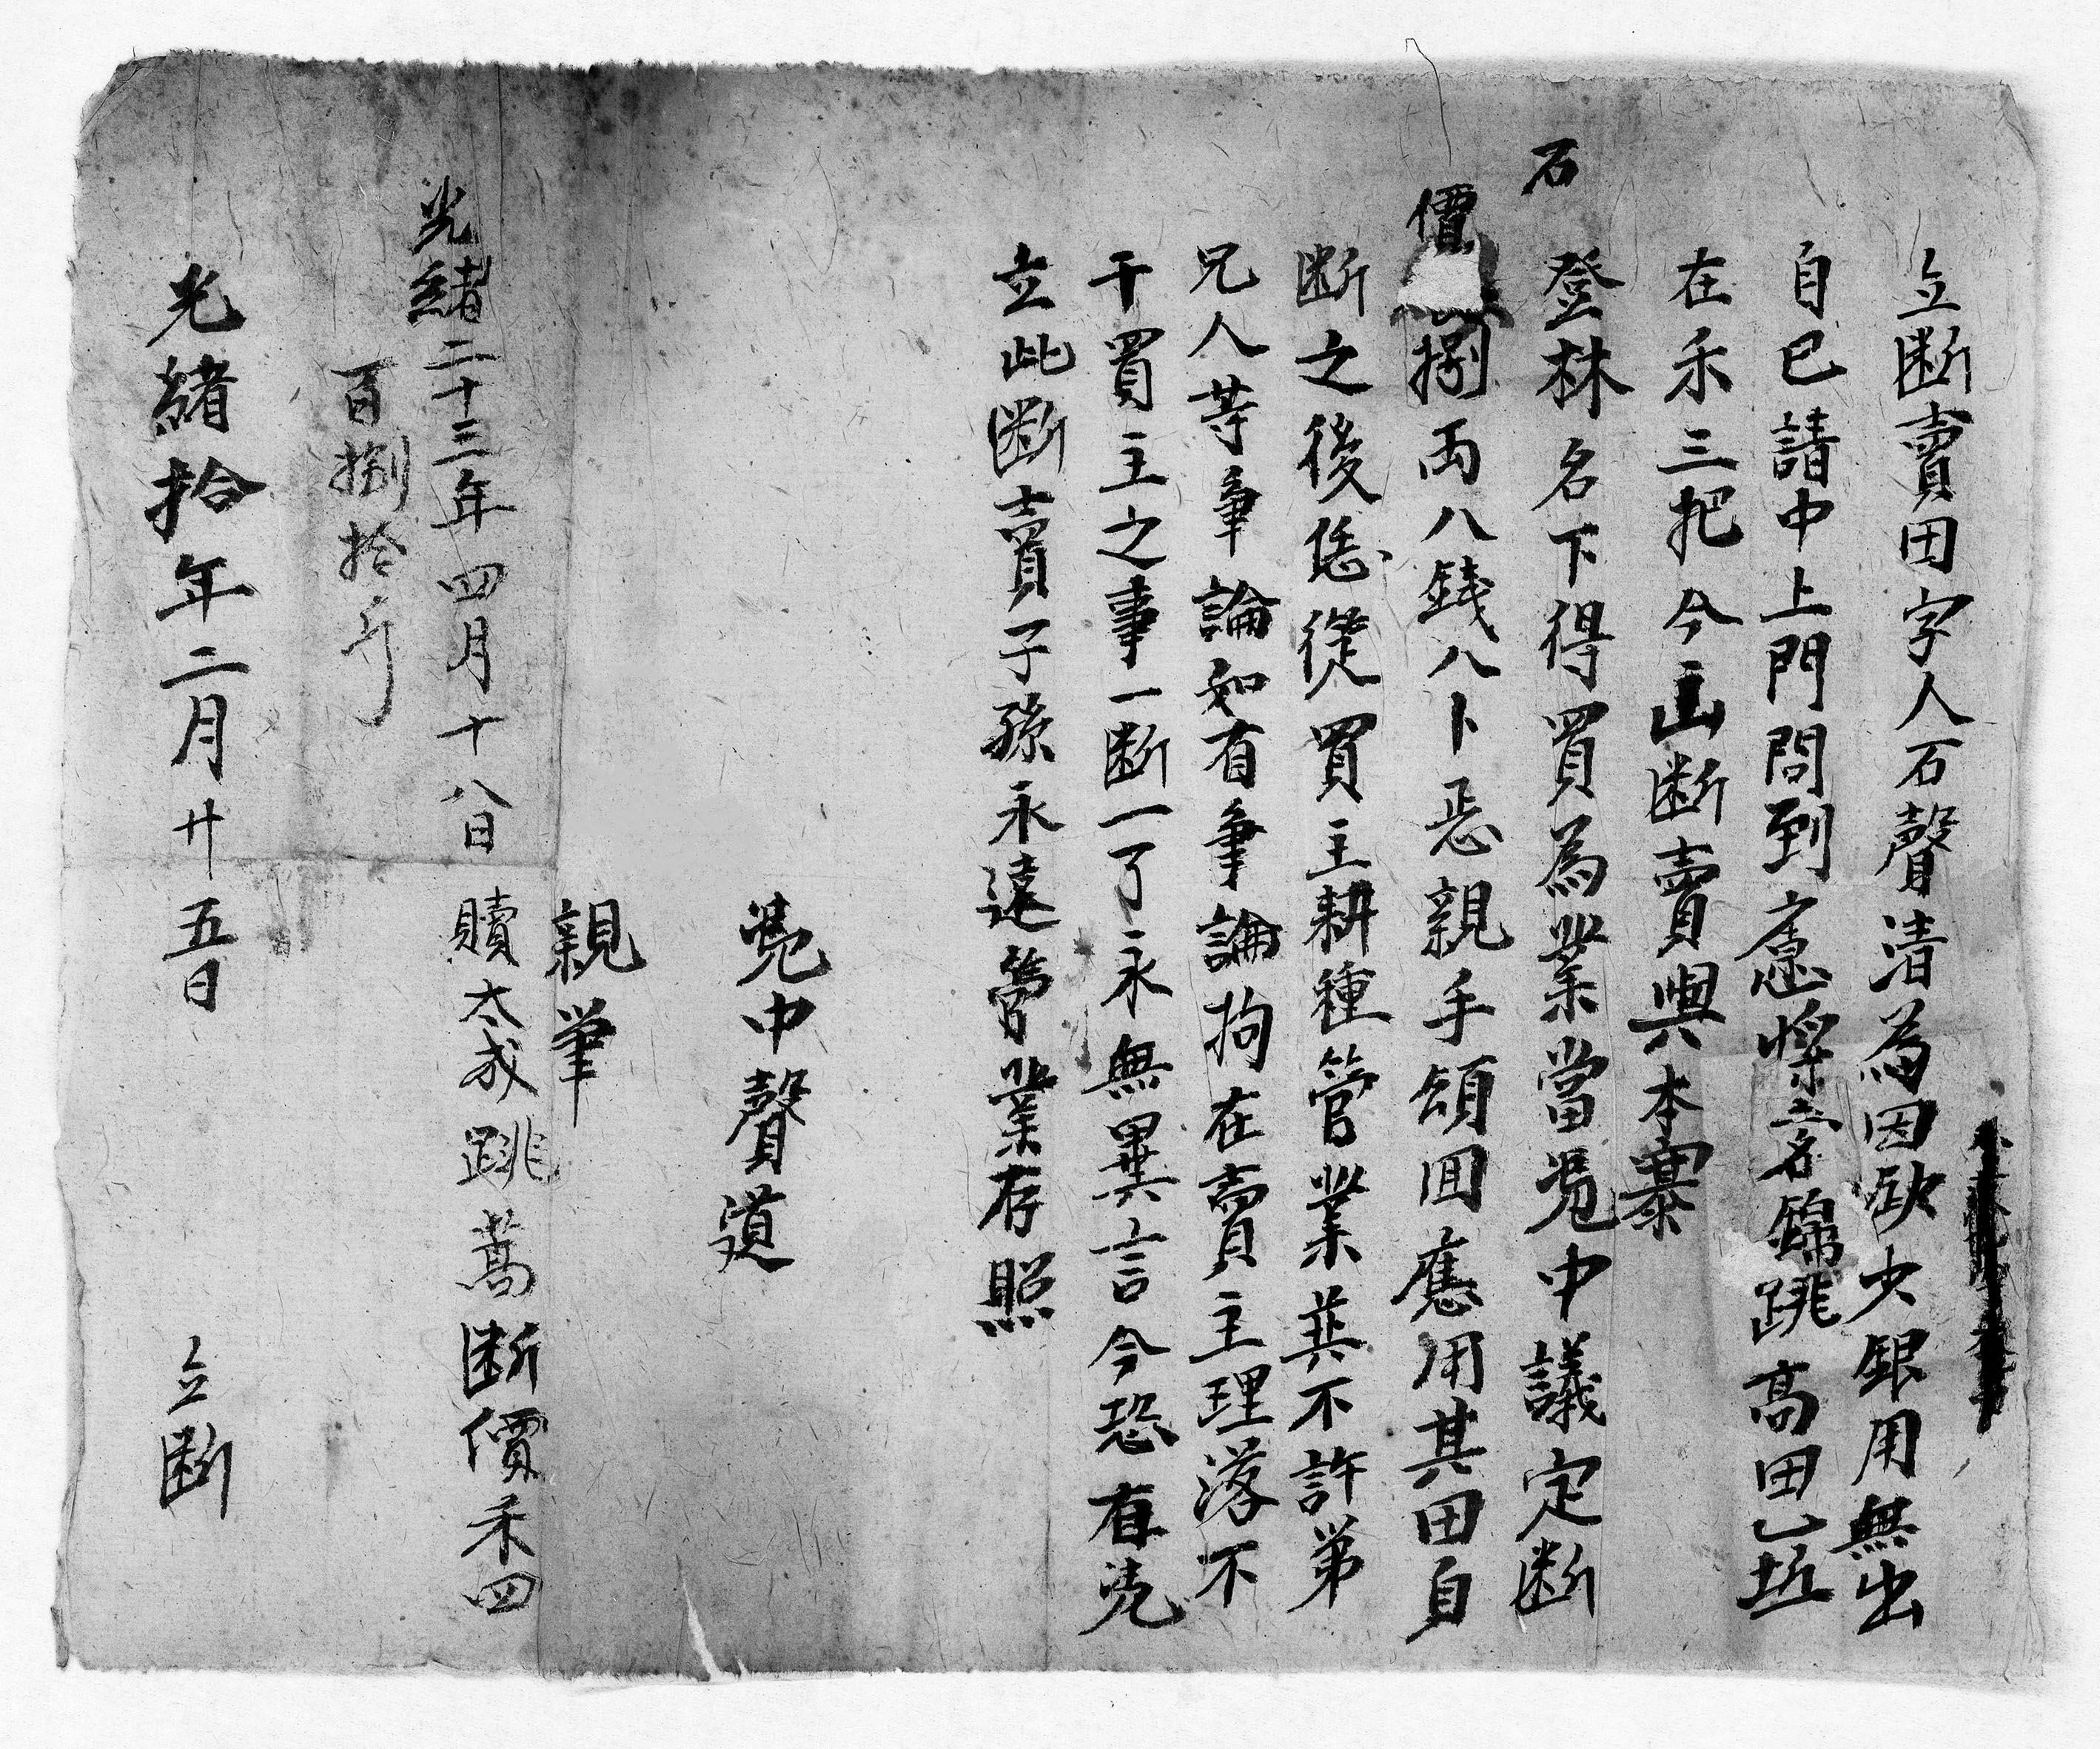 立断賣田字人石聲清為因欲少銀用無出
自己請中上門問到應將塝名錦跳高田乙坵
在禾三把今𠙖断賣與本寨
石
登林名下得買為業當凴中議定断
價捌両八錢八卜恁親手領囬應用其田自
断之後恁從買主耕種管業其不許弟
兄人等爭論如有爭論拘在賣主理落不
干買主之事一断一了永無異言今恐有凴
立此断賣子孫永遠管業存照
凴中聲道
親筆
光緒二十三年四月十八日贖太成跳蒿断價禾四
百捌拾斤
光緒拾年二月廿五日 立断